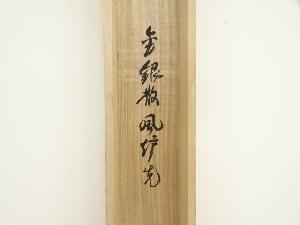 金銀散風炉先